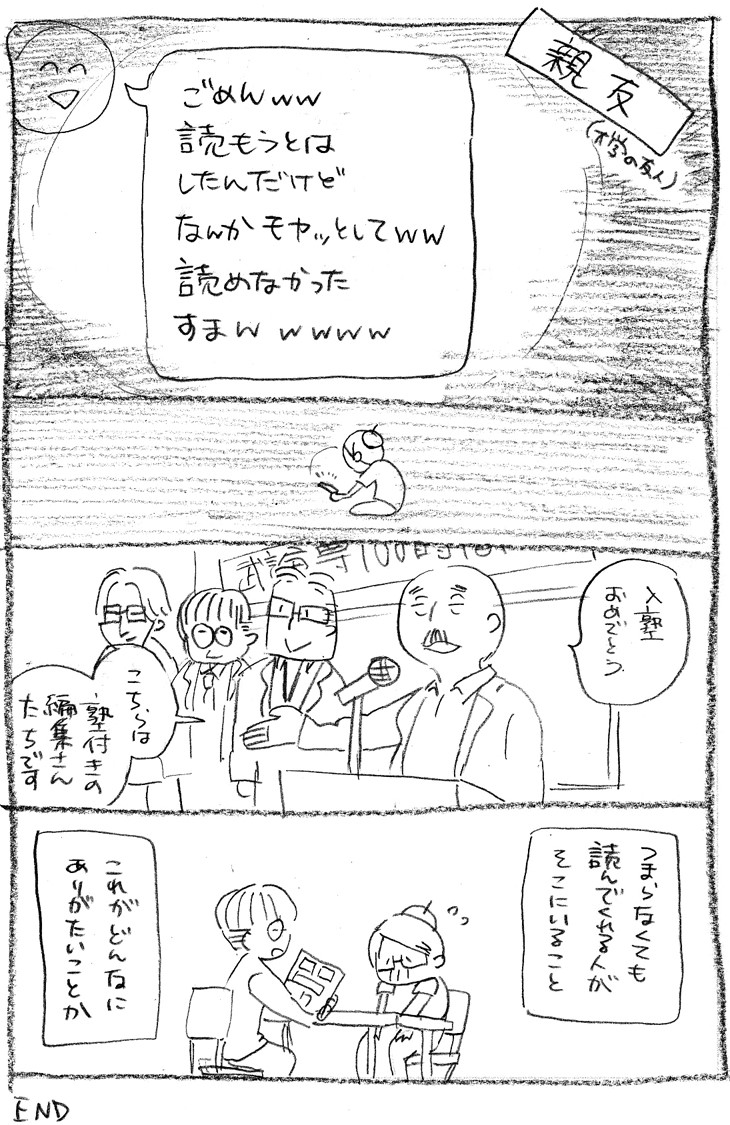 親友
ごめんww
読もうとは
したんだけど
なんかモヤッとしてww
読めなかった
すまんwwwww
入塾
おめでとう
こちらは
塾付きの
編集さん
たちです
つまらなくても
読んでくれる人が
そこにいること
これがどんなに
ありがたいことか
END